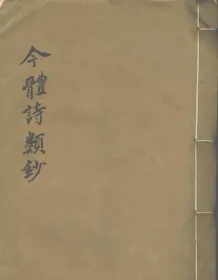 今體詩類鈔